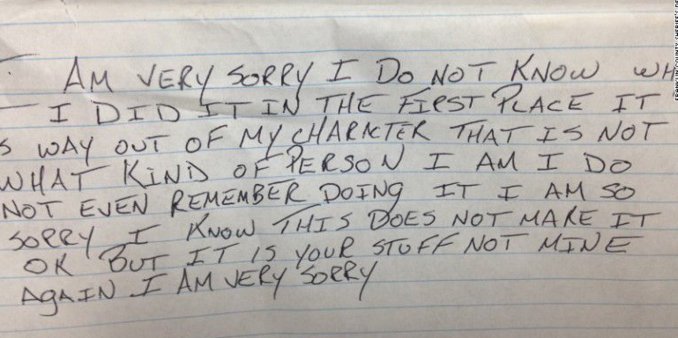 I AM VERY SORRY I DO NOT KNOW WH
I DID IT IN THE FIRST PLACE IT
S WAY OUT OF MY CHARICTER THAT IS NOT
WHAT KIND OF PERSON I AM I DO
NOT EVEN REMEMBER DOING IT I AM SO
SORRY I KNOW THIS DOES NOT MAKE IT
OK BUT IT IS YOUR STUFF NOT MINE
AGAIN I AM VERY SORRY